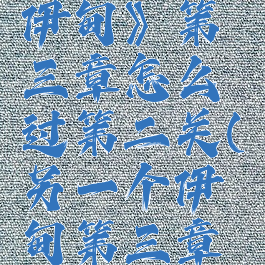 伊甸》第
三章怎么
过第二关(
另一个伊
甸第三章